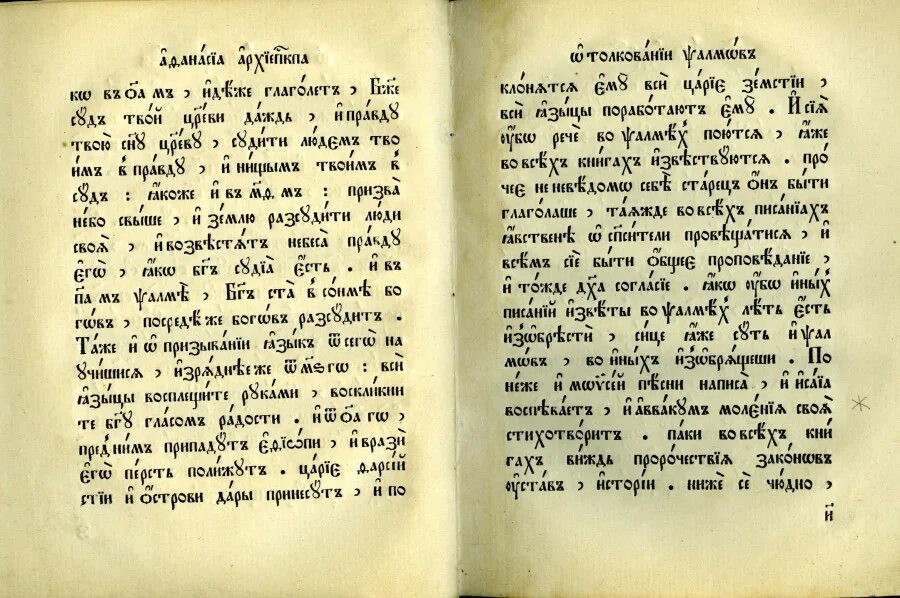 а҆ѳана́сїа а҆рхїепⷭ҇кпа
кѡ въ ѻ҃а мъ , и҆дѣ́же глаго́летъ , Бж҃е
сꙋ́дъ тво́й цр҃еви да́ждь , и҆ пра́вдꙋ
твою̀ сн҃ꙋ цр҃евꙋ , сꙋди́ти лю́демъ тво
и҆́мъ в пра́вдꙋ , и҆ ни́щымъ твои́мъ в
сꙋ́дъ : ꙗ҆́коже и҆ въ м҃ѳ мъ : призва̀
не́бо свы́ше , и҆ зе́млю разсꙋди́ти лю́ди
своѧ̀ , и҆ возвѣстѧ́тъ небеса̀ пра́вдꙋ
є҆гѡ̀ , ꙗ҆́кѡ бг҃ъ сꙋдїа̀ є҆́сть . и҆ въ
п҃а мъ ѱалмѣ̀ , Бг҃ъ ста̀ в со́нмѣ бо
го́въ , посредѣ́ же богѡ́въ разсꙋ́дитъ .
Та́же и҆ ѡ҆ призыва́нїи ꙗ҆зы́къ ѿ сегѡ̀ на
ꙋчи́шисѧ , и҆зрѧ́днѣе же ѿ м҃ѕ гѡ : всѝ
ꙗ҆зы́цы восплещи́те рꙋка́ми , воскли́кни
те бг҃ꙋ гла́сомъ ра́дости . и҆ ѿ ѻ҃а гѡ ,
пред ни́мъ припадꙋ́тъ є҆ѳїѻ́пи , и҆ врази̇̀
є҆гѡ̀ пе́рсть поли́жꙋтъ . ца́рїе ѳарсі́й
стїи и҆ ѻ҆́строви да́ры принесꙋ́тъ , и҆ по
ѡ҆ толкова́нїи ѱалмѡ́въ
кло́нѧтсѧ є҆мꙋ̀ всѝ ца́рїе зе́мстїи ,
всѝ ꙗ҆зы́цы порабо́таютъ є҆мꙋ̀ . И҆ сїѧ̀
ᲂу҆́бѡ речѐ во ѱалмѣ́хъ пою́тсѧ , ꙗ҆́же
во всѣ́хъ кни́гахъ и҆звѣствꙋ́ютсѧ . про́
чее не невѣ́домѡ себѣ̀ ста́рецъ ѻ҆́нъ бы́ти
глаго́лаше , та́ѧжде во всѣ́хъ писа́нїахъ
ꙗ҆́вственѣ ѡ҆ сп҃си́тели провѣща́тисѧ , и҆
всѣ́мъ сїѐ бы́ти ѻ҆́бщее проповѣ́данїе ,
и҆ то́жде дх҃а согла́сїе . ꙗ҆́кѡ ᲂу҆́бѡ и҆ны́хъ
писа́нїй и҆звѣ́ты во ѱалмѣ́хъ лѣ́ть є҆́сть
и҆з̾ѡбрѣстѝ , си́це ꙗ҆́же сꙋ́ть и҆ ѱал
мѡ́въ , во и҆ны́хъ и҆з̾ѡбрѧ́щеши . По
не́же и҆ мѡѷсе́й пѣ́сни написа̀ , и҆ и҆са́їа
воспѣва́етъ , и҆ а҆ввакꙋ́мъ моле́нїѧ своѧ̀
стихотвори́тъ . па́ки во всѣ́хъ кни́
гахъ ви́ждь проро́чествїѧ зако́нѡвъ
ᲂу҆ста́въ , и҆сто́рїи . ни́же сѐ чю́дно ,
и҃